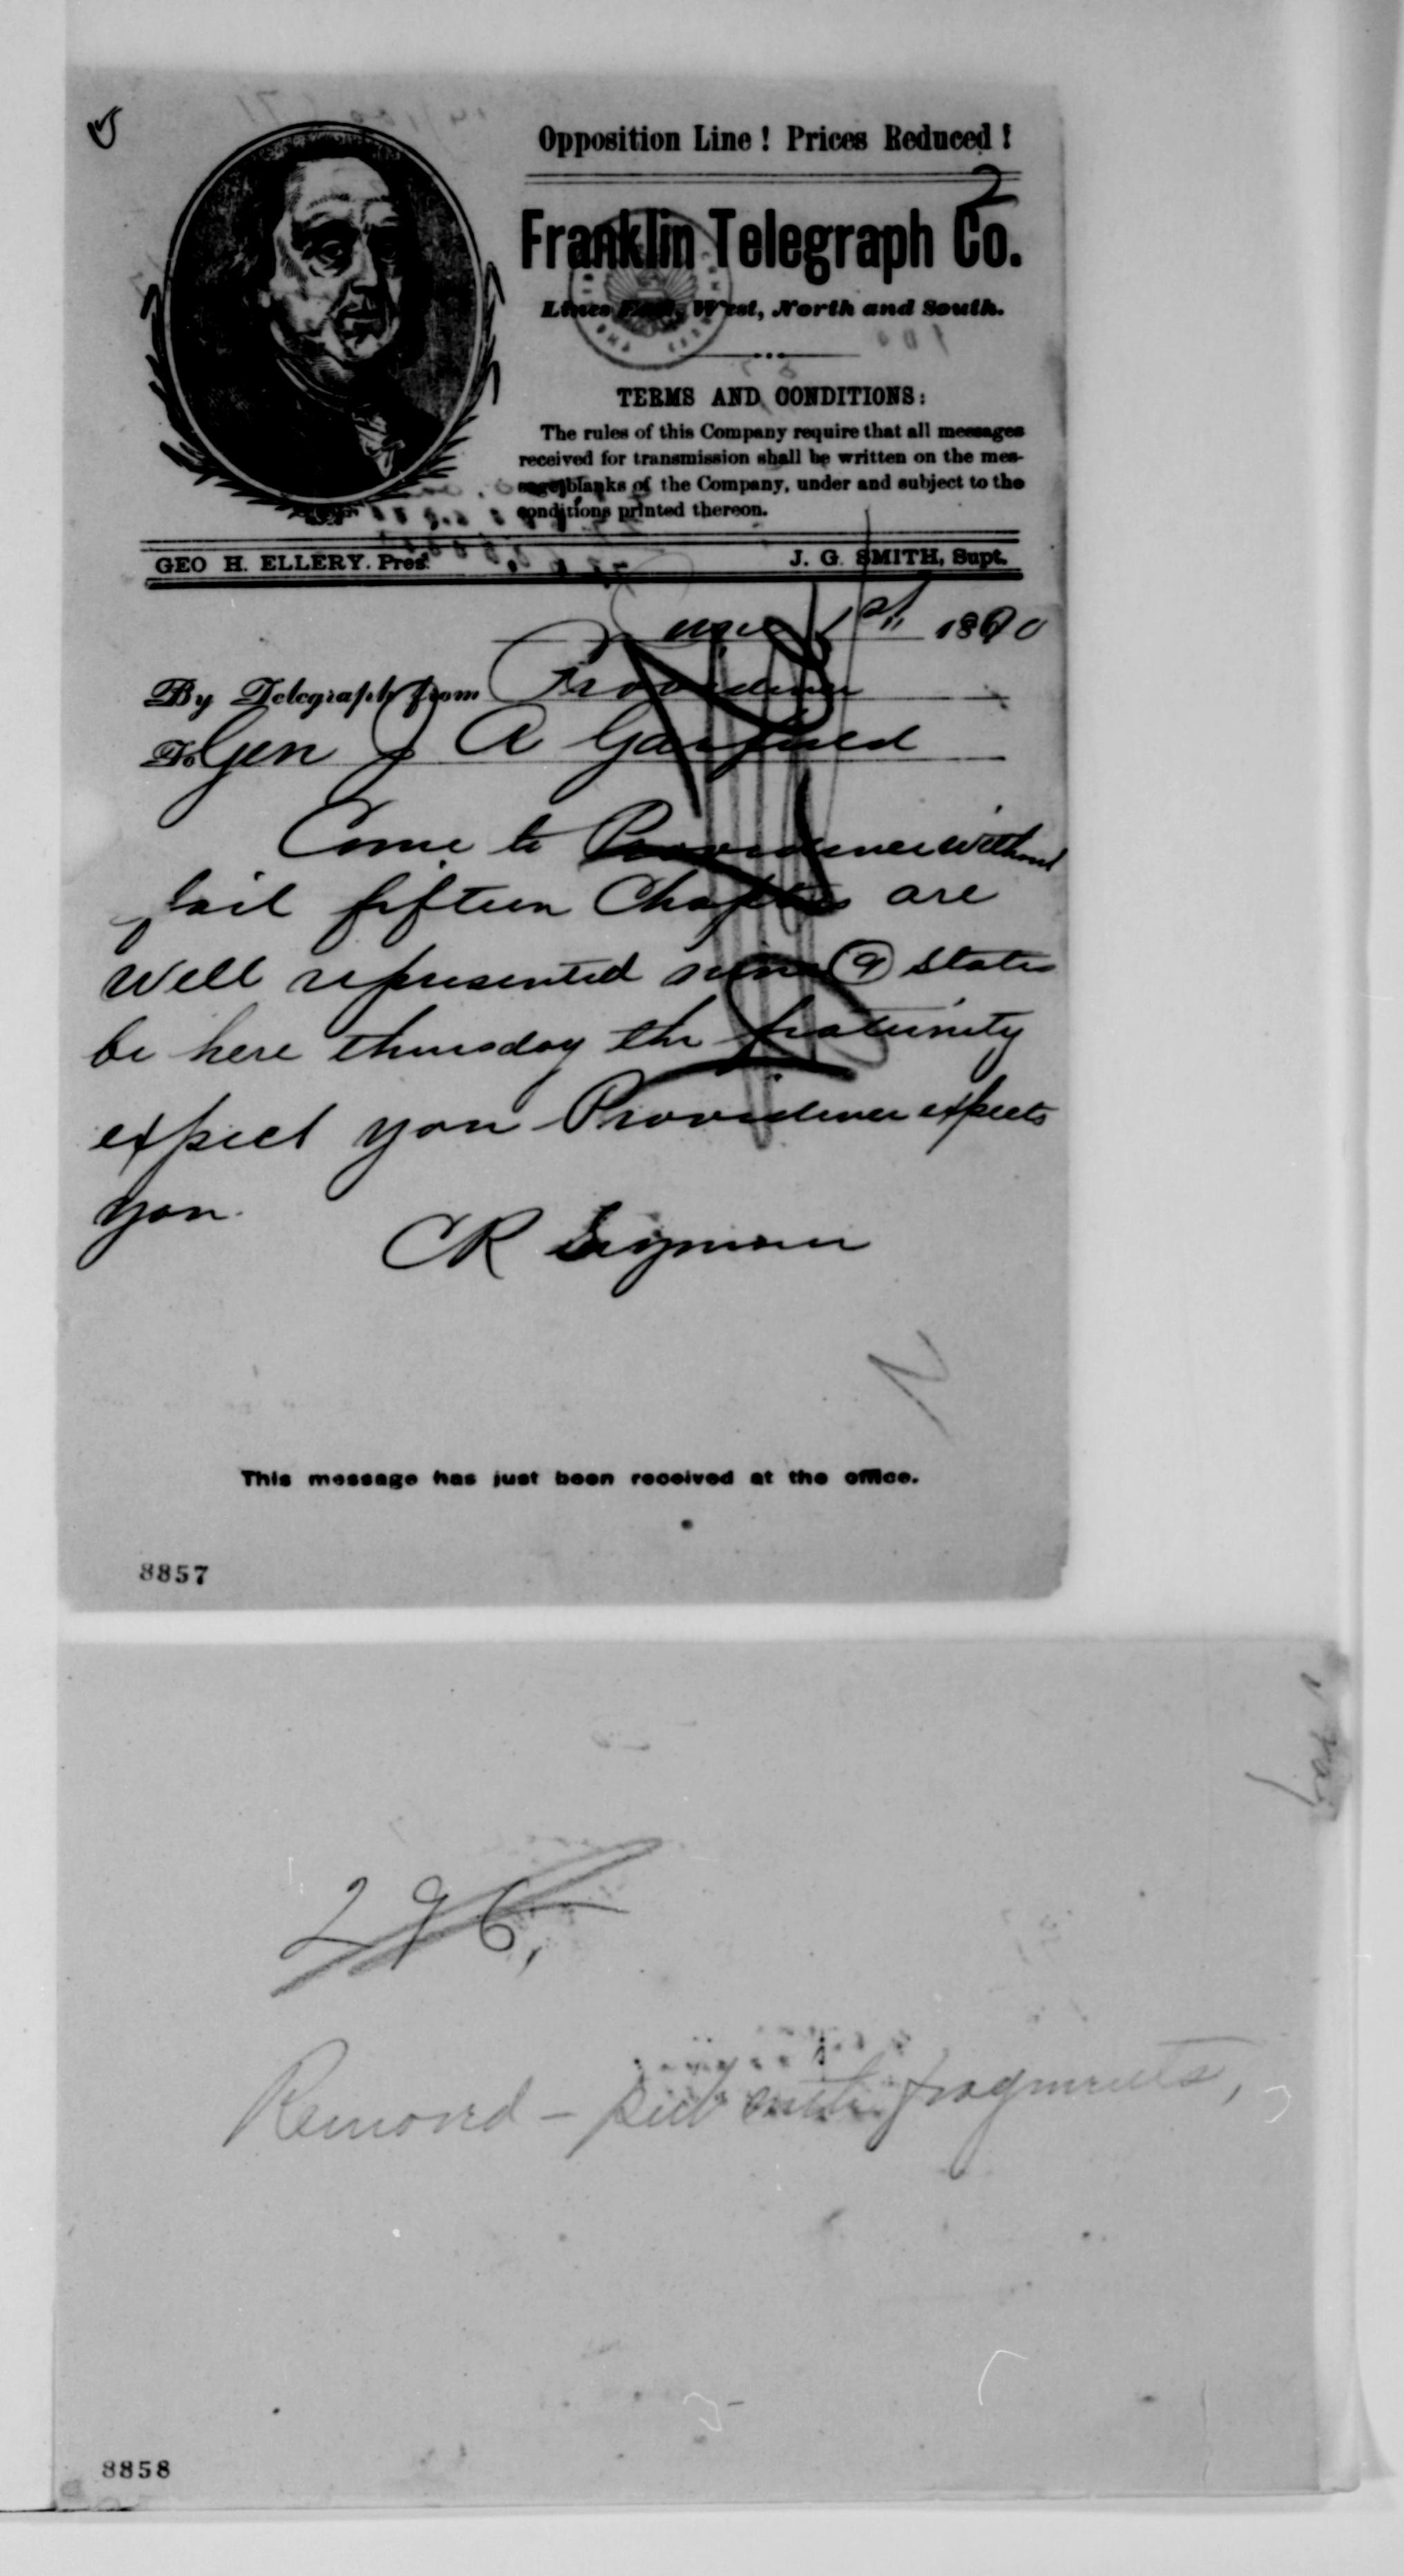 Opposition Line! Prices Reduced!
2
Franklin Telegraph Co.
Lines East, West, North and South.
TERMS AND CONDITIONS:
The rules of this Company require that all messages
received for transmission shall be written on the mes-
sage blanks of the Company, under and subject to the
conditions printed thereon.
GEO H. ELLERY. Pres. J. G. SMITH, Supt.
June 1st 1870
By Telegraph from Providence
To Gen J A Garfield
Come to Providence without
fail fifteen Chapters are
well represented nine (9) states
be here thursday the fraternity
expect you Providence expects
you.
CR
N
This message has just been received at the office.
8857
296,
Removed - fragments,
8858